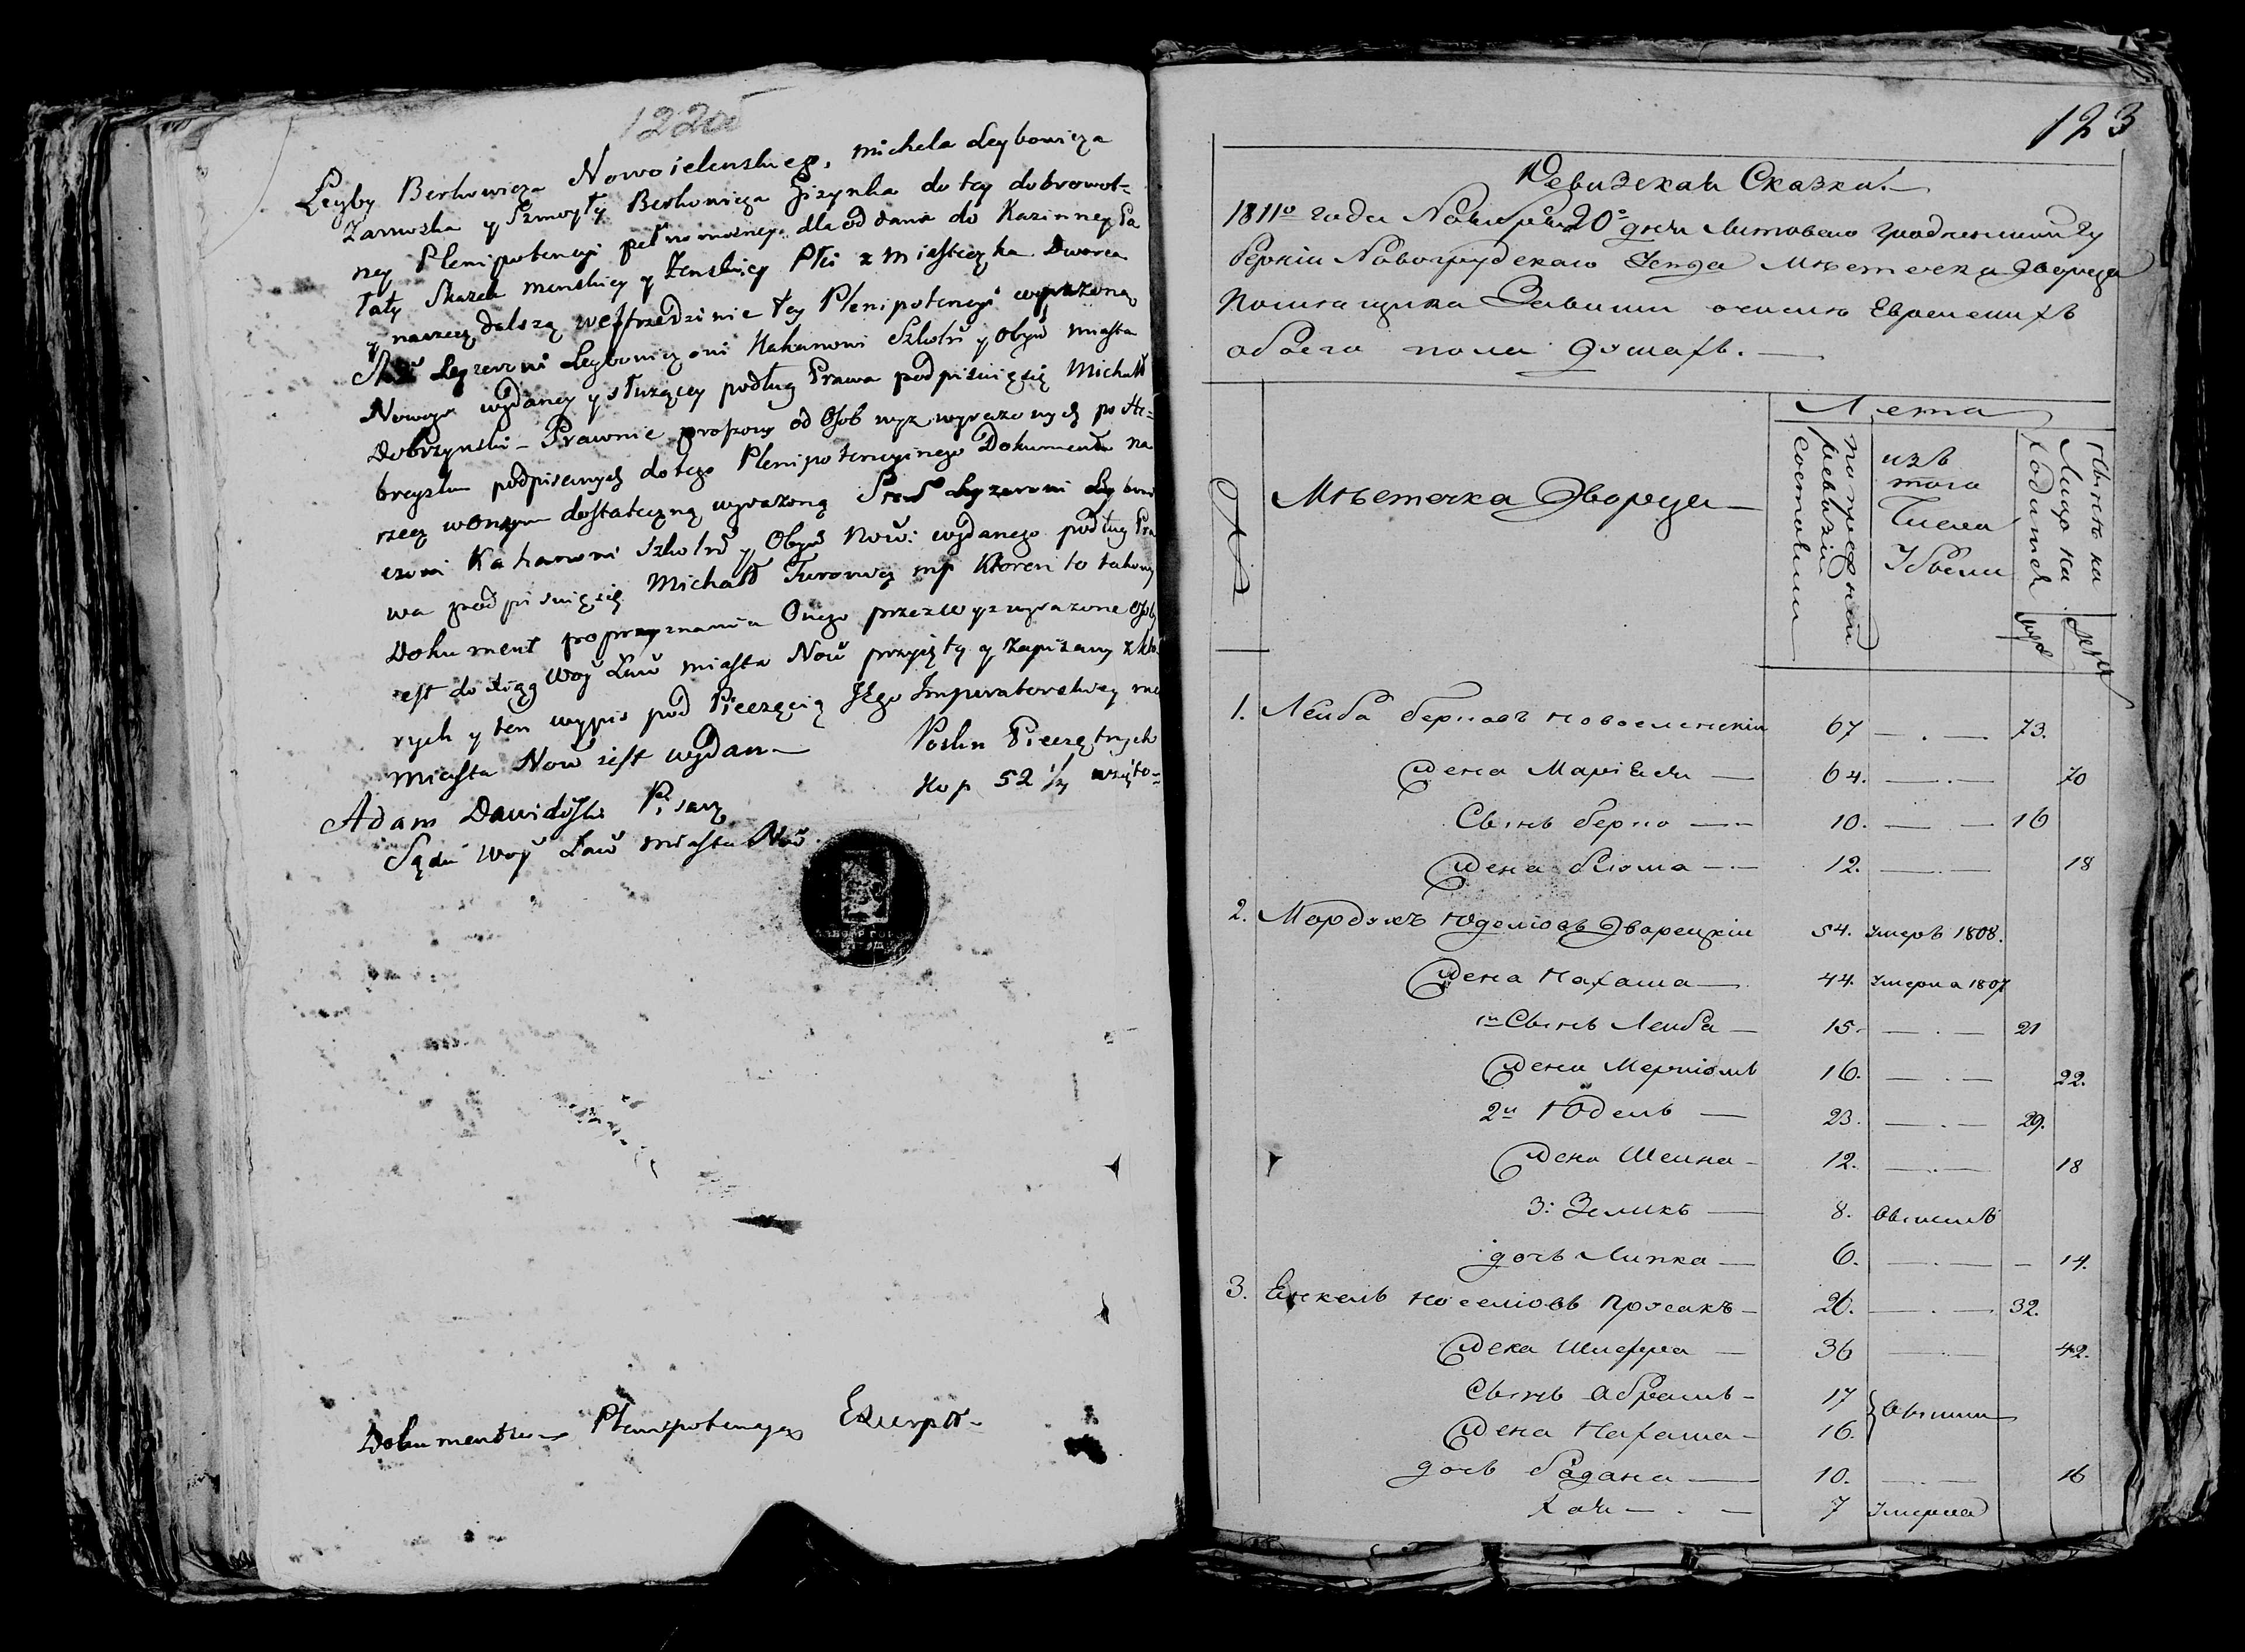 122об
Leyby Berkowicza Nowosielenskiego, Michela Leybowicza
Zamoska y Szmoyły Berkowicza Gizynka do tey dobrowol-
ney Plenipotencyi pełnomocney dla oddania do Kazionney Pa
łaty Skazek menskiey y Zenskiey Płci z miasteczka Dworca
y naszey dalszą weszrzedzinie tey Plenipotencyi wyrazoną
Leyzerowi Leybowiczowi Kahanowi Szkolń y Obyw miasta
Nowogo wydaney y służącey podług Prawa podpisuię się Michał
Dobrzynski – Prawnie proszony od Osob wyz wyrazonych po He-
breysku podpisanych do tego Plenipotencyinego Dokumentu na
rzecz wonym dostateczną wyrazoną Leyzerowi Leybowi
czowi Kahanowi Szkolń y Obyw Now: wydanego podług Pra
wa podpisuię się Michał Turowicz mp Ktoren to takowy
Dokument po przyznaniu Onego przez wyz wyrazone Osoby
iest do Xiąg Woy Ław miasta Now przyięty y zapisany z kto
rych y ten wypis pod Pieczęcią JEgo Imperatorskiey
miasta Now iest wydan —
Poszlin Pieczętnych
Kop 52 1/2 wzięto –
Adam Dawidowski Pisarz
Sądu Woy Ław miasta Now.
Dokumentu Plenipotencyi Extrakt
123
Ревизская Сказка.
1811го года Ноября 20го дня Литовско Гродненской Гу
бернии Новогрудскаго Уезда Мѣстечка Дворца
Помещика Завиши о числѣ Евреискихъ
обоего пола душахъ.
№
Мѣстечка Дворца
Лета
по прежней ревизіи состояли
изъ того числа Убыли
Нынѣ на Лицо находится
муж
жен
1. Лейба берковъ новоеленскій 67 — . — 73.
Жена Маріася — 64. — . — 70
Сынъ берко — 10. — — 16
Жена блюма — 12. — . — 18
2. Мордухъ Юделіовъ Дворецкій 54. Умеръ 1808.
Жена Нахама — 44. Умерла 1807
1й Сынъ Лейба — 15. — . — 21
Жена Меріамъ 16. — . — 22.
2й Юдель — 23. — . — 29.
Жена Шейна – 12. — . — 18
3: Зеликъ — 8. Выписанъ
дочь Липка — 6. — . — – 14.
3. Енкель Носеліовъ Прусакъ – 26. — . — 32.
Жена Шифра — 36 — . — 42.
Сынъ Абрамъ – 17
Жена Нахама – 16.
Выписаны
дочь бадана — 10. — . — 16
Хая — . — 7 Умерла